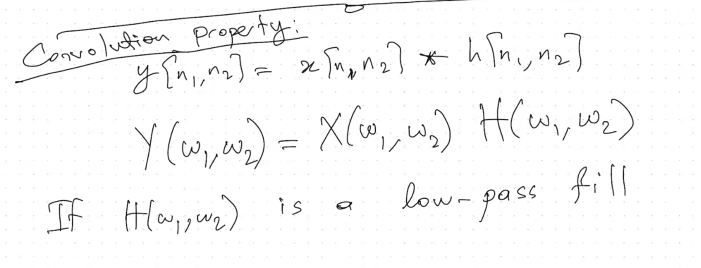 Convolution property:
y[n₁,n₂] = x[n₁,n₂] * h[n₁,n₂]
Y(ω₁,ω₂) = X(ω₁,ω₂) H(ω₁,ω₂)
If H(ω₁,ω₂) is a low-pass fill